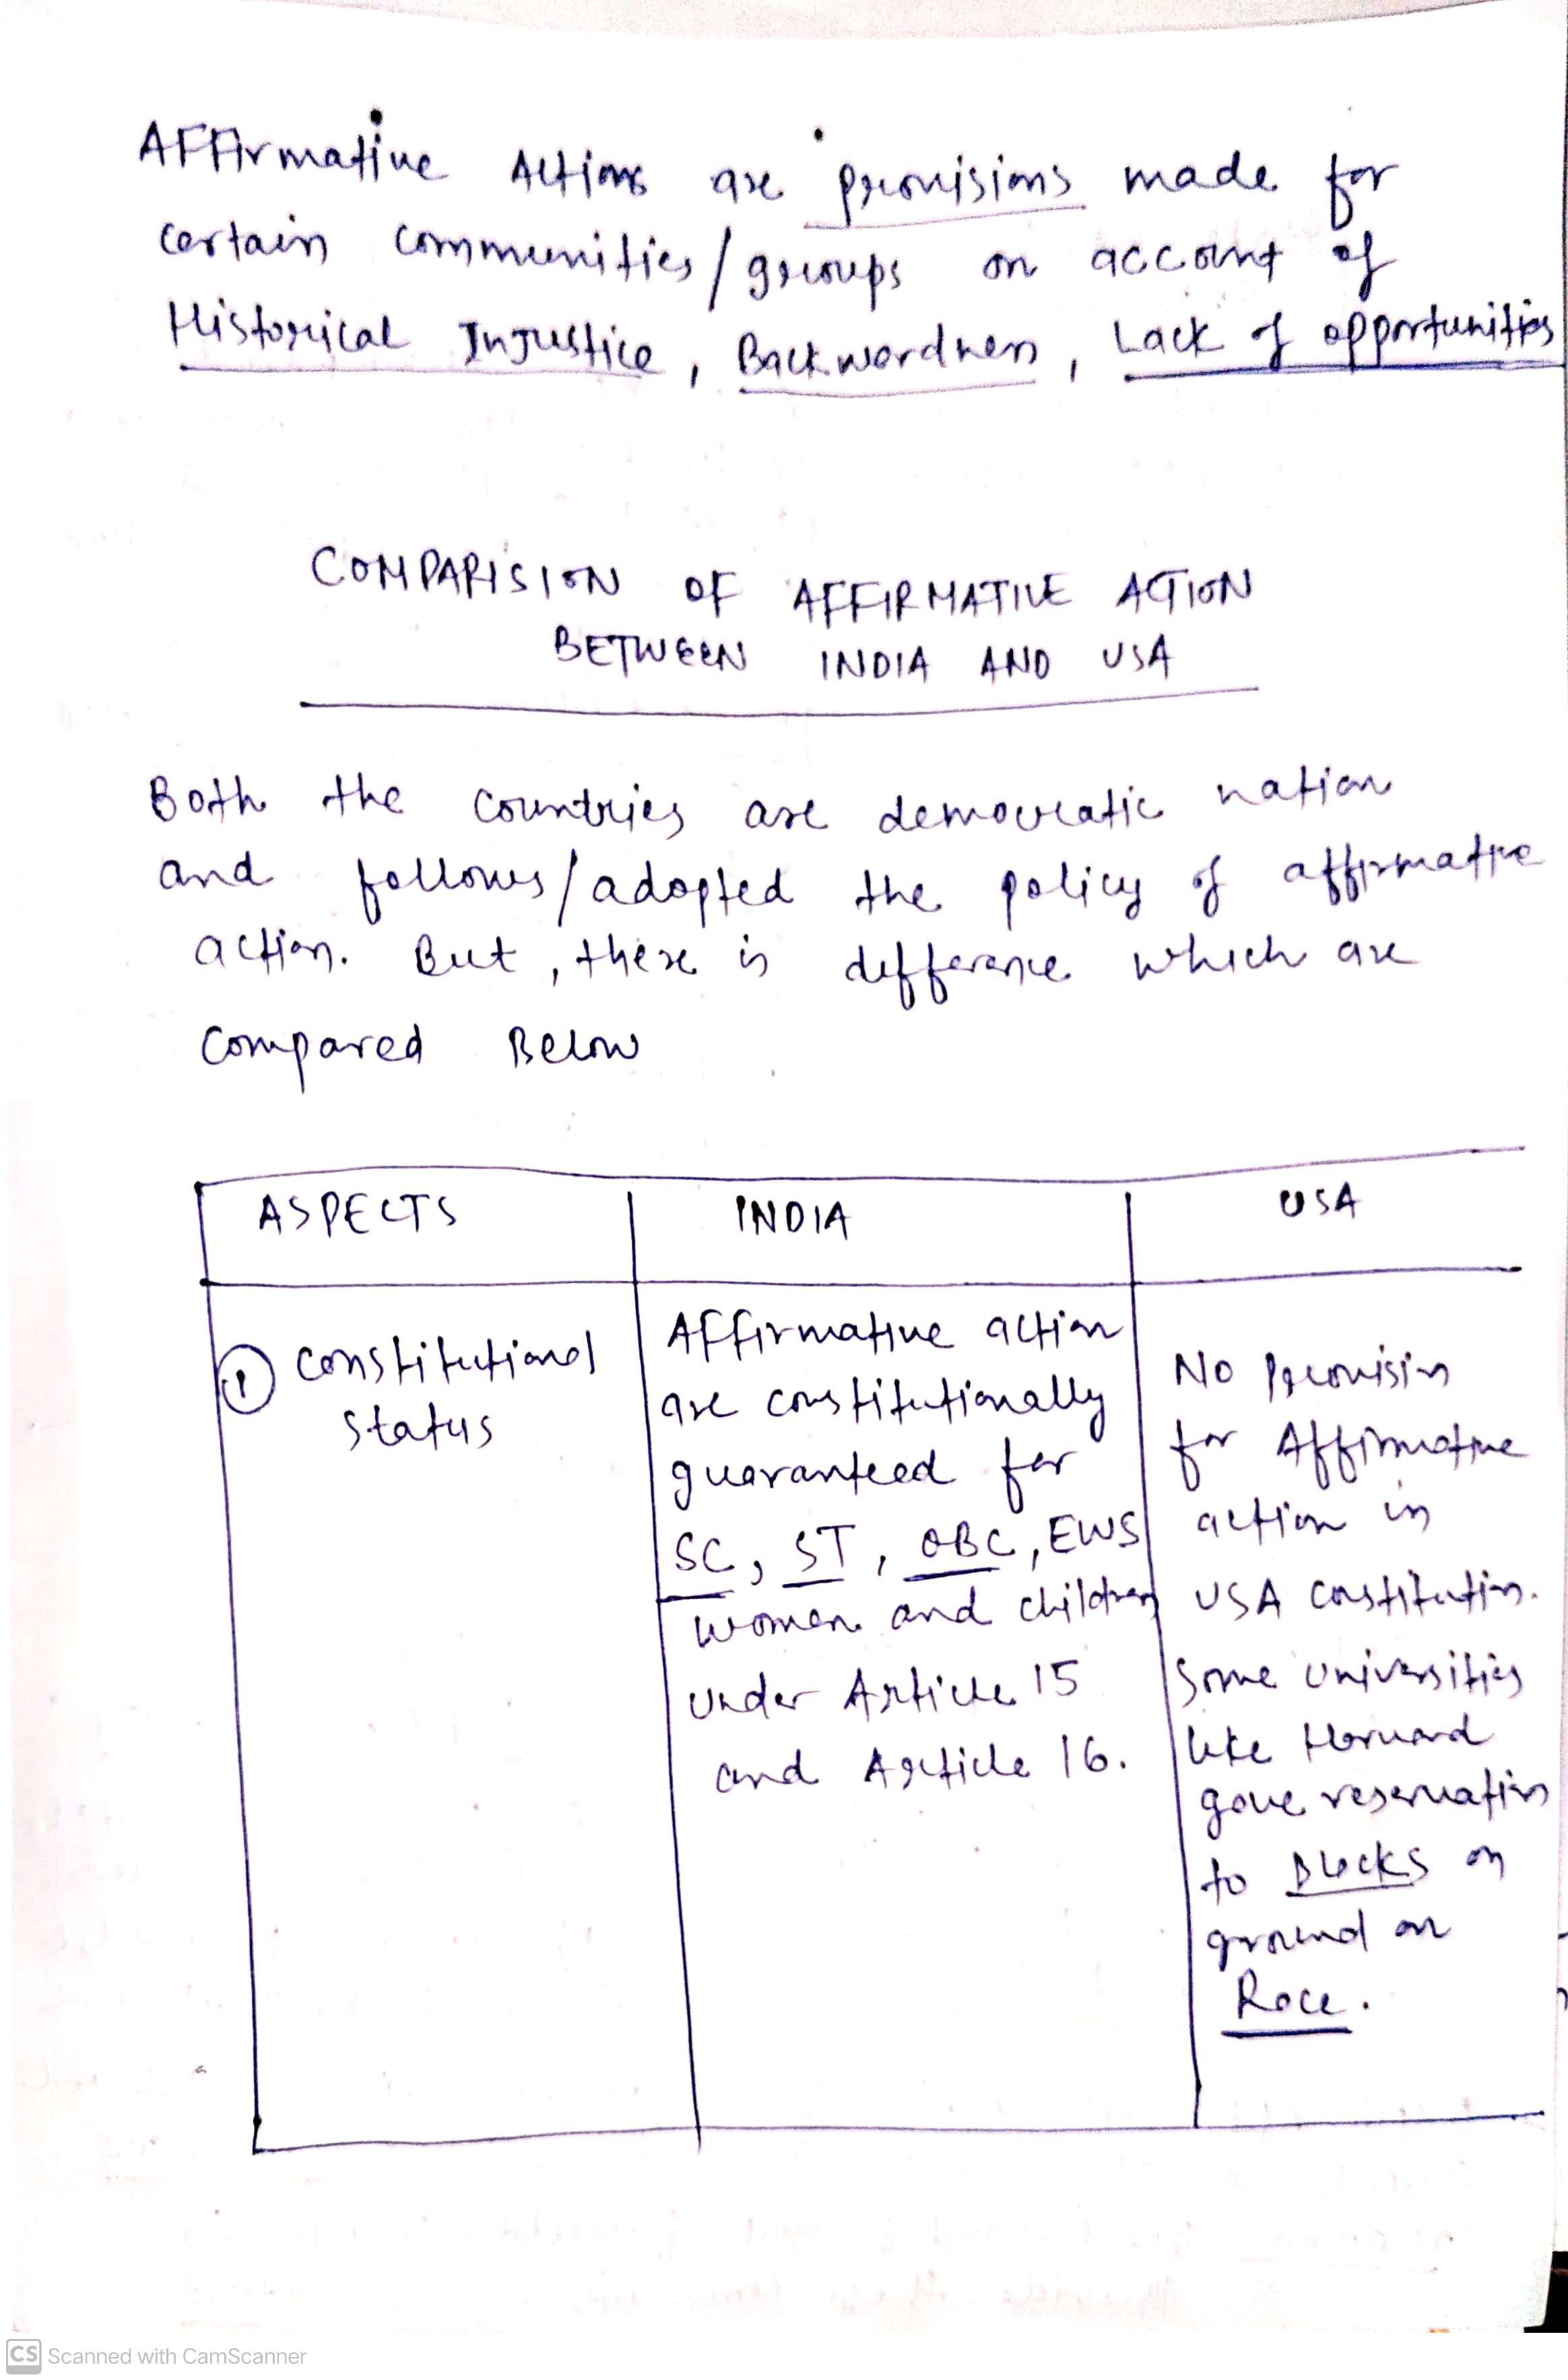 Affirmative Actions are provisions made for
certain communities/groups on account of
Historical Injustice, Backwordness, Lack of opportunities
COMPARISION OF AFFIRMATIVE ACTION
BETWEEN INDIA AND USA
Both the countries are democratic nation
and follows/adopted the policy of affirmative
action. But, there is differance which are
compared Below
ASPECTS INDIA USA
① Constitutional
status
Affirmative action
are constitutionally
guaranteed for
SC, ST, OBC, EWS
women and children
under Article 15
and Article 16.
No Provision
for Affirmative
action in
USA Constitution.
Some Universities
like Harvard
gave reservation
to Blacks on
ground on
Race.
CS Scanned with CamScanner